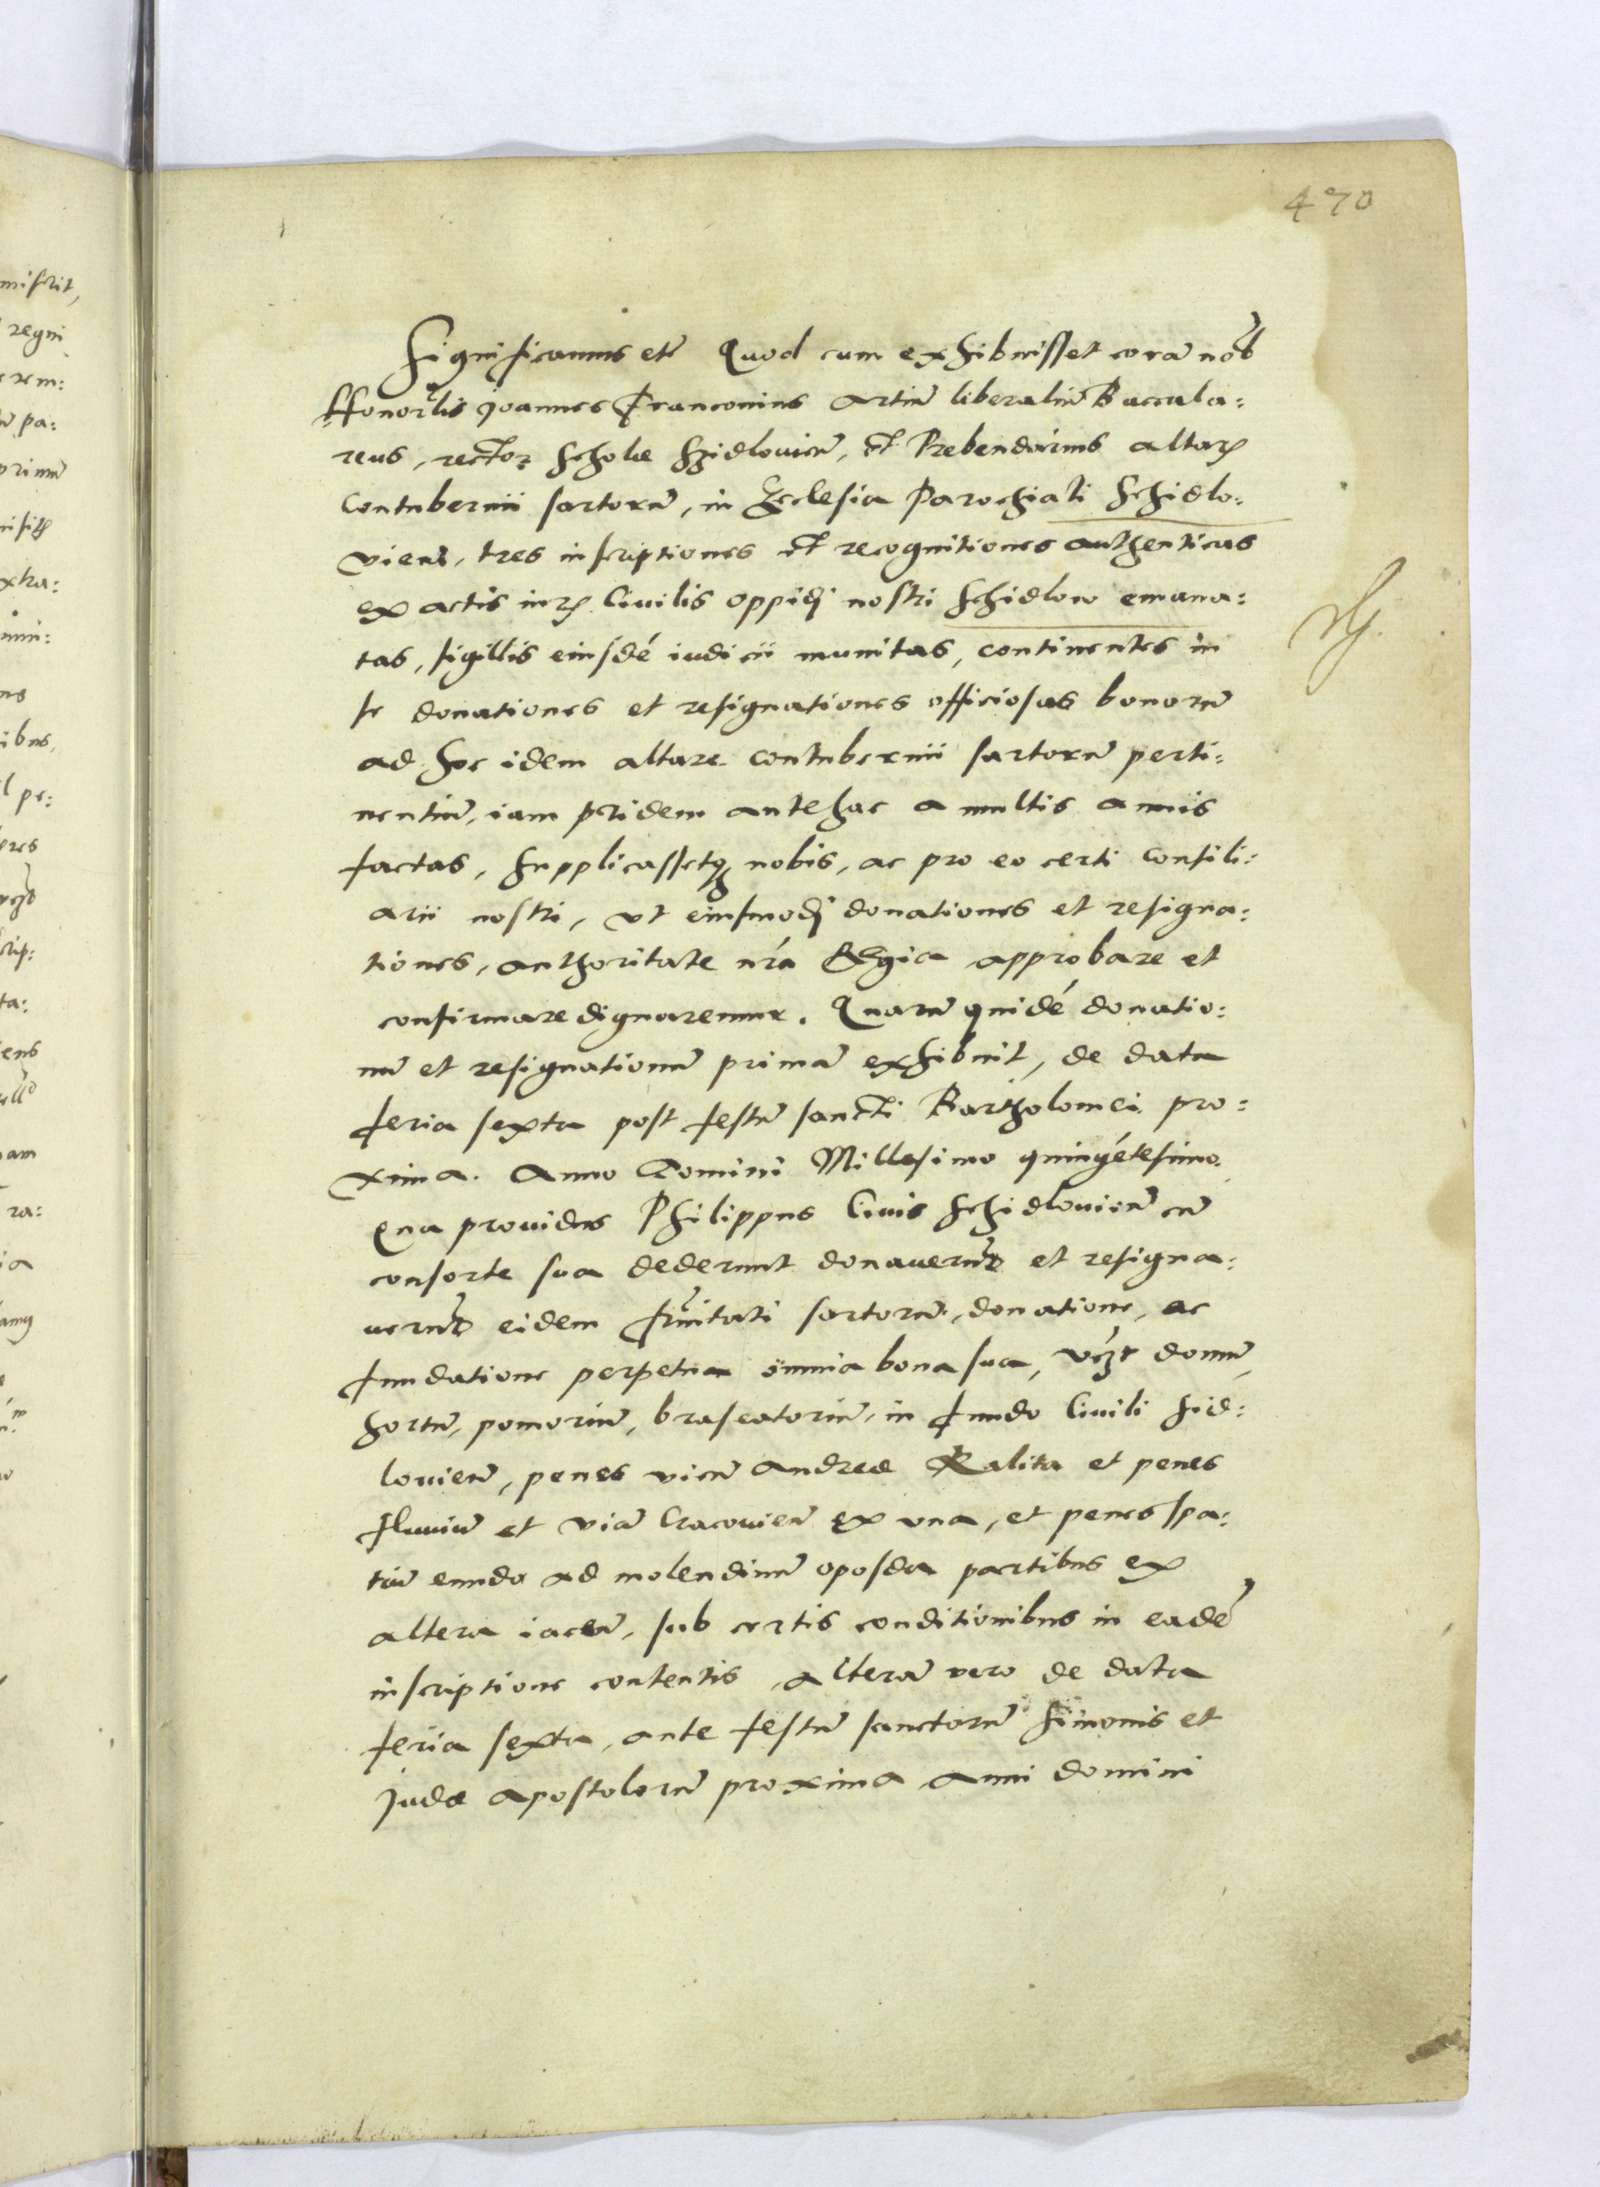 470
Significamus etc̃ Quod cum exhibuisset corã nob̃
Honorlis Joannes Franconius artiũ liberaliũ Baccala:
reus, rector Scholæ Szidlovieñ, et Prebendarius altaris
Contubernii sartorũ, in Ecclesia Parochiali Schidlo:
vieñ, tres inscriptiones et recognitiones authenticas
ex actis iuris Civilis oppidi nostri Schidlow emana:
tas, sigillis eiusdé iudicii munitas, continentes in
se donationes et resignationes officiosas bonorũ
ad hoc idem altare contubernii sartorũ perti:
nentiũ, iam pridem antehac a multis annis
factas, Supplicassetq nobis, ac pro eo certi Consili:
arii nostri, ut eiusmodi donationes et resigna:
tiones, authoritate nrá Regia approbare et
confirmare dignaremur. Quarũ quidé donatio:
nũ et resignationũ primã exhibuit, de data
feria sexta post festũ sancti Bartholomei pro:
xima. Anno Domini Millesimo quingétesimo.
Qua providus Philippus Civis Schidlovieñ cũ
consorte sua dederunt donaverũt et resigna:
verũt eidem fr̃nitati sartorũ, donatione, ac
fundatione perpetua omnia bona sua, vczt domũ,
hortũ, pomoriũ, braseatoriũ, in fundo Civili Sid:
lovieñ, penes vicũ Andreæ Kalita et penes
fluviũ et viã Cracovieñ ex una, et penes spa:
tiũ eundo ad molendinũ oposda partibus ex
altera iaceñ, sub certis conditionibus in eadé
inscriptione contentis, alterã vero de data
feria sexta, ante festũ sanctorũ Simonis et
Judæ apostolorũ proxima anni domini